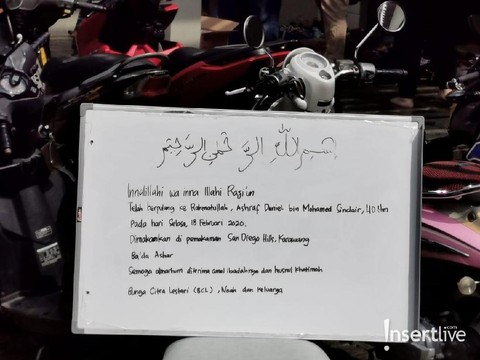 بِسْمِ اللَّهِ الرَّحْمٰنِ الرَّحِيْمِ
Innalillahi wa inna Illahi Raji'un
Telah berpulang ke Rahmatullah, Ashraf Daniel bin Mohamed Sinclair, 40 thn
Pada hari Selasa, 18 Februari 2020.
Dimakamkan di pemakaman San Diego Hills, Karawang
Ba'da Ashar
Semoga almarhum diterima amal ibadahnya dan husnul khatimah
Bunga Citra Lestari (BCL), Noah dan keluarga
Insertlive.com